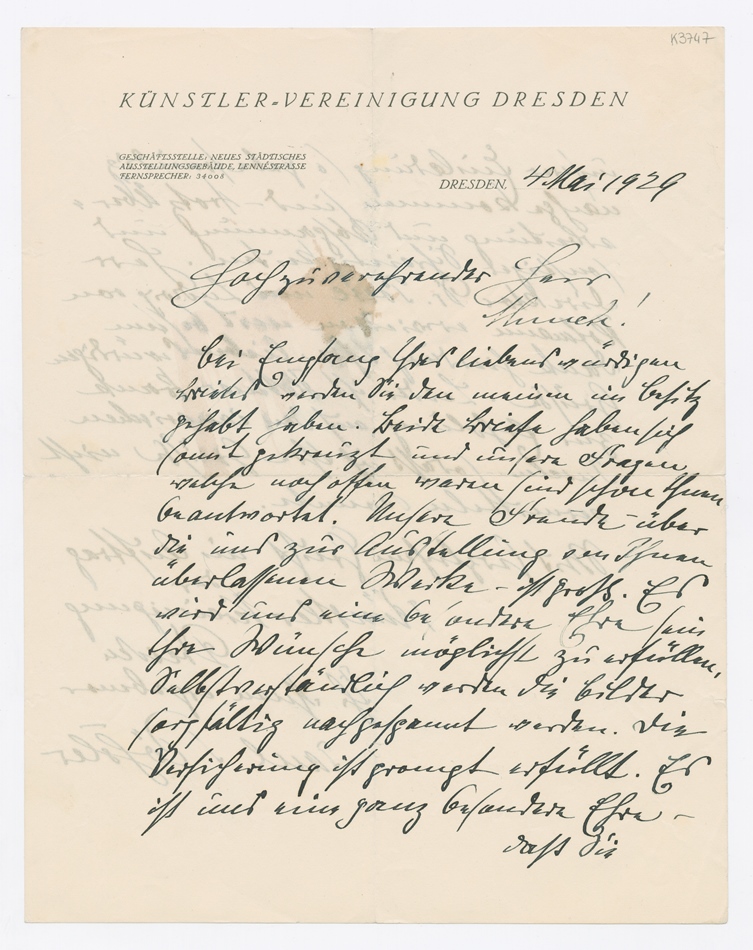 K3747
KÜNSTLER=VEREINIGUNG DRESDEN
GESCHÄFTSSTELLE: NEUES STÄDTISCHES
AUSSTELLUNGSGEBÄUDE, LENNÉSTRASSE
FERNSPRECHER: 34008
DRESDEN, 4 Mai 1929
Hochzuverehrender Herr
Munch!
Bei Empfang Ihres liebenswürdigen
Briefes werden Sie den meinen im Besitz
gehabt haben. Beide Briefe haben sich
somit gekreuzt und unsere Fragen
welche noch offen waren sind schon Ihnen
beantwortet. Unsere Freude über
die uns zur Ausstellung von Ihnen
überlassenen Werke – ist groß. Es
wird uns eine besondere Ehre sein
Ihre Wünsche möglichst zu erfüllen.
Selbstverständlich werden die Bilder
sorgfältig nachgespannt werden. Die
Versicherung ist prompt erfüllt. Es
ist uns eine ganz besondere Ehre –
daß Sie